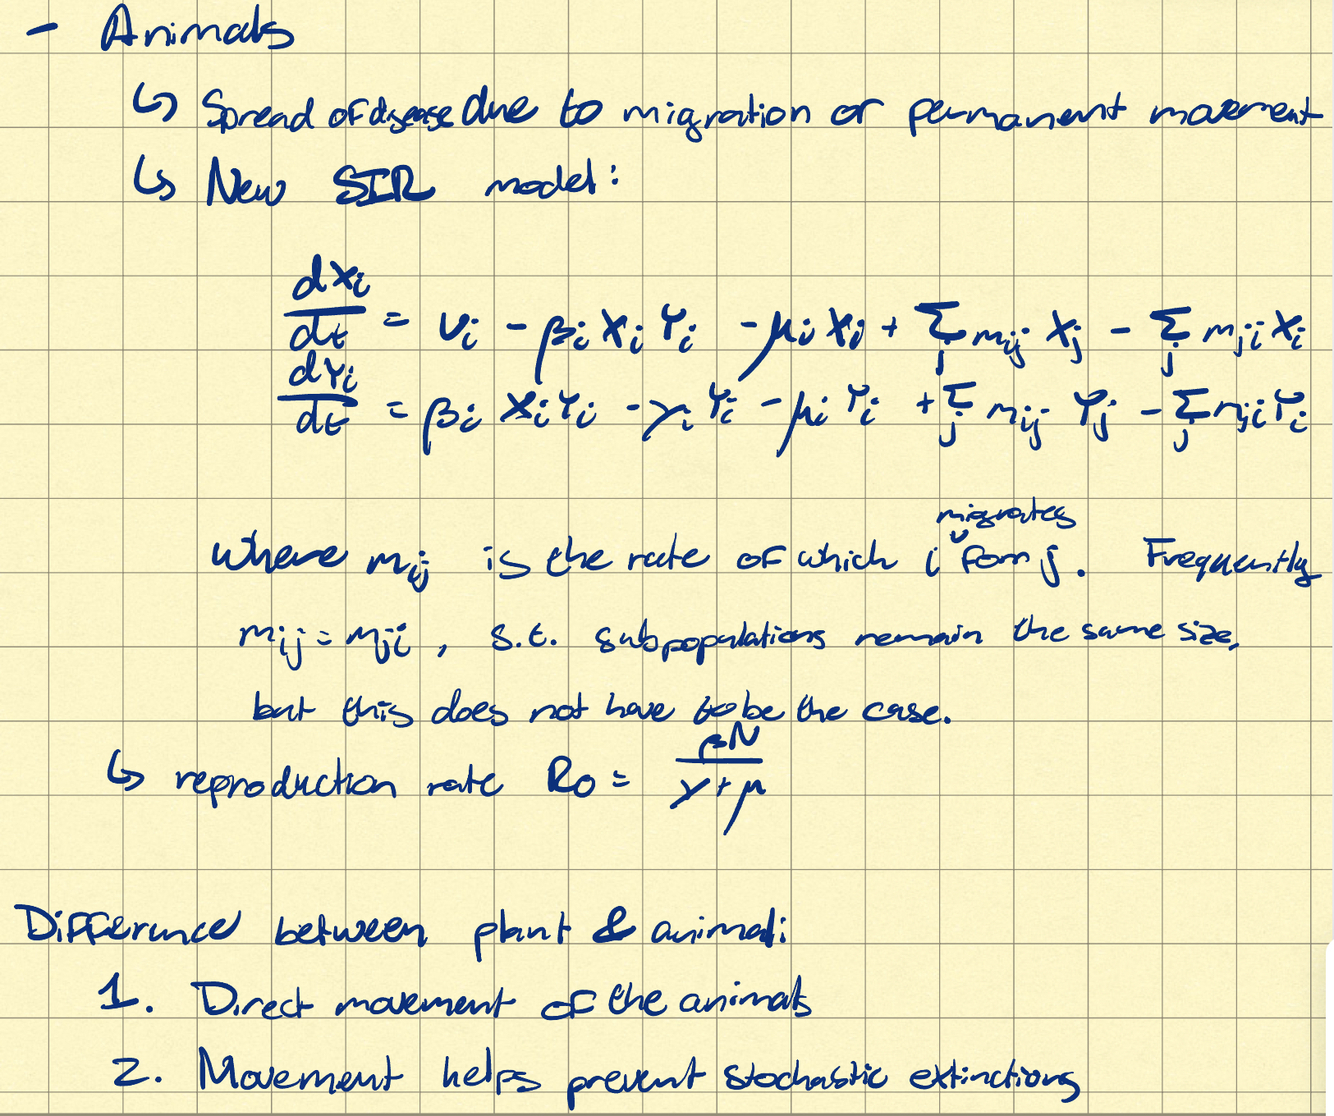 - Animals
↳ Spread of disease due to migration or permanent movement
↳ New SIR model:
dXi/dt = νi - βi Xi Yi - μi Xi + Σj mij Xj - Σj mji Xi
dYi/dt = βi Xi Yi - γi Yi - μi Yi + Σj mij Yj - Σj mji Yi
where mij is the rate of which i migrates form j. Frequently
mij = mji, s.t. subpopulations remain the same size,
but this does not have to be the case.
↳ reproduction rate R0 = βN/γ+μ
Difference between plant & animal:
1. Direct movement of the animals
2. Movement helps prevent stochastic extinctions